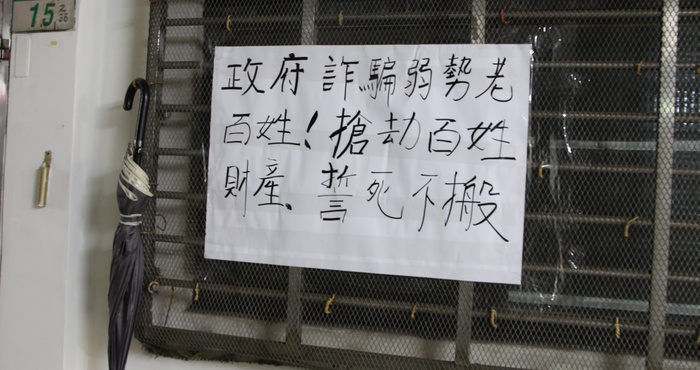 15之36
政府詐騙弱勢老
百姓!搶劫百姓
財產、誓死不搬